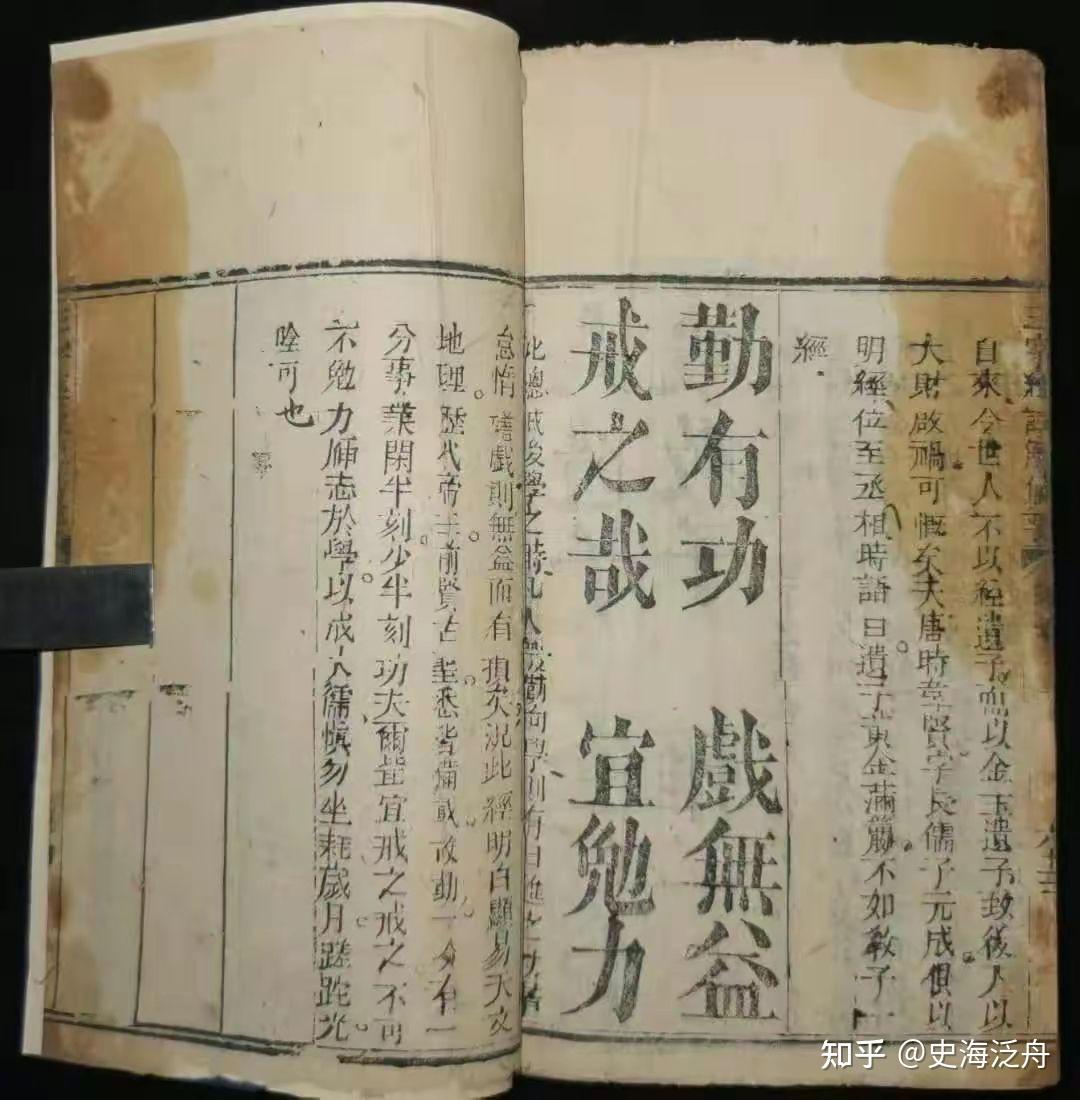 自來今世人不以經遺子而以金玉遺子致後人以
大財啟禍可慨矣夫唐時韋賢字長儒子元成俱以
明經位至丞相時語曰遺子黃金滿籯不如教子一
經
勤有功 戲無益
戒之哉 宜勉力
此總戒後學之時凡人勤向學則有日進之功
怠惰嬉戲則無益而有損矣況此經明白顯易天文
地理歷代帝王前賢古聖悉皆備載故勤一分有一
分事業閑半刻少半刻功夫爾豈宜戒之戒之不可
不勉力師志於學以成大儒慎勿坐耗歲月蹉跎光
陰可也
知乎 @史海泛舟